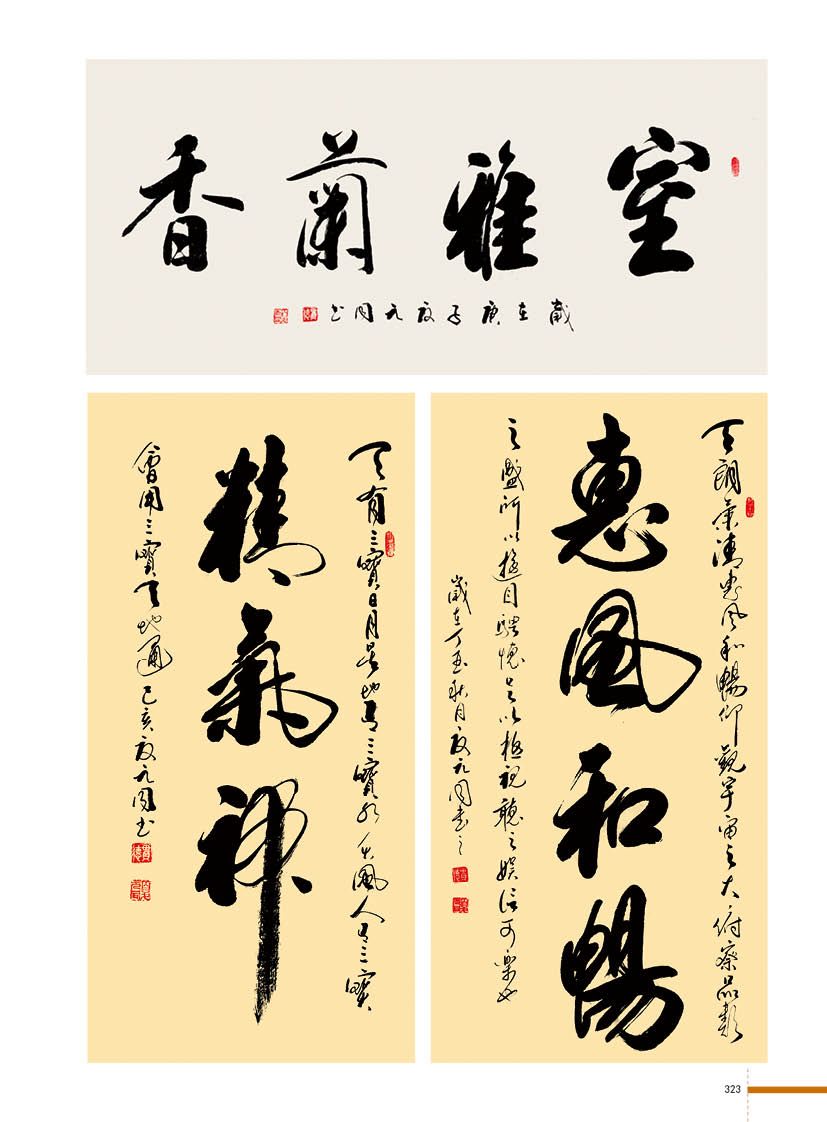 室雅蘭香
歲在庚子夏元同书
天朗氣清惠風和暢仰觀宇宙之大俯察品類
惠風和暢
之盛所以遊目騁懷足以極視聽之娛信可樂也
歲在丁酉秋月夏元同書之
天有三寶日月星地有三寶水火風人有三寶
精氣神
會用三寶天地通己亥夏元同书
323